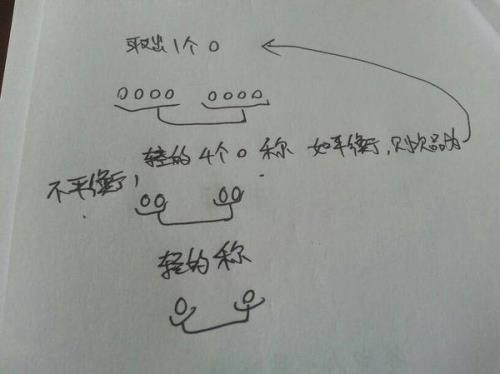 取出1个0
0000 0000
轻的4个0称 如平衡,则次品为
不平衡,
00 00
轻的称
0 0